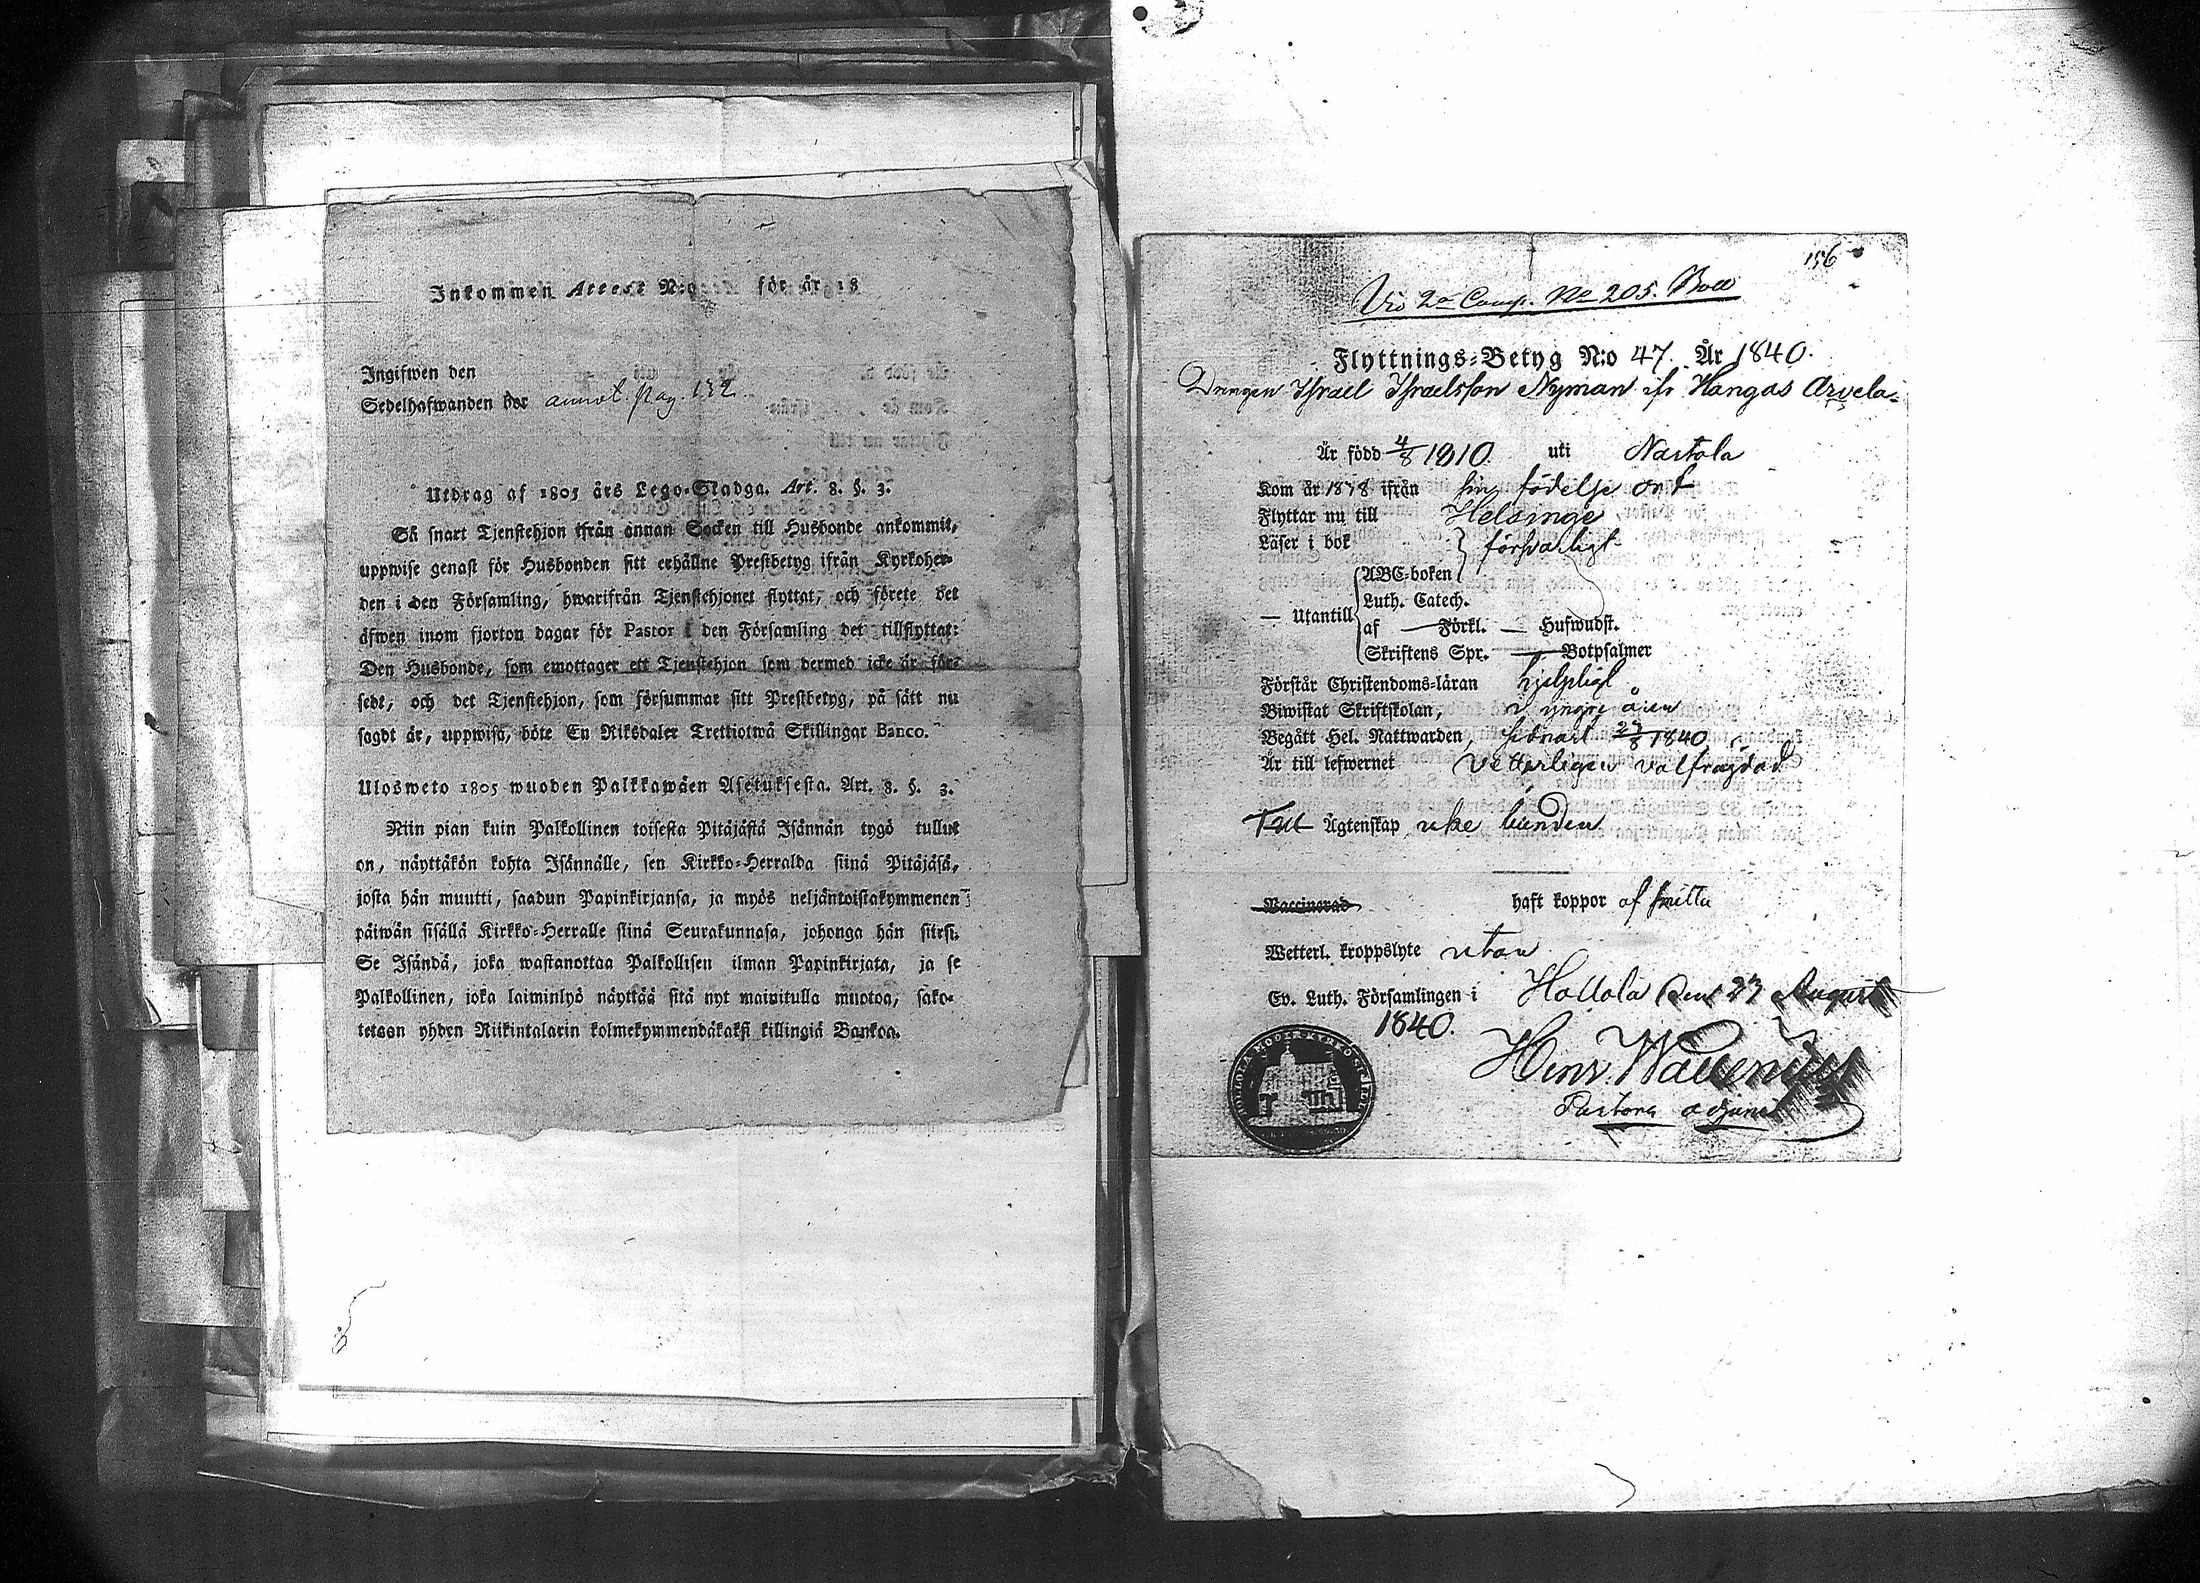 Inkommen Attest N:o för år 18
Ingifwen den
Sedelhafwanden bor annot. pag. 132.
Utdrag af 1805 års Lego-Stadga. Art. 8. §. 3.
Så snart Tjenstehjon ifrån annan Socken till Husbonde ankommit,
uppwise genast för Husbonden sitt erhållne Prestbetyg ifrån Kyrkoher-
den i den Församling, hwarifrån Tjenstehjonet flyttat, och förete det
äfwen inom fjorton dagar för Pastor i den Församling det tillflyttat:
Den Husbonde, som emottager ett Tjenstehjon som dermed icke är för-
sedt, och det Tjenstehjon, som försummar sitt Prestbetyg, på sätt nu
sagdt är, uppwisa, böte En Riksdaler Trettiotwå Skillingar Banco.
Ulosweto 1805 wuoden Palkkawäen Asetuksesta. Art. 8. §. 3.
Niin pian kuin Palkollinen toisesta Pitäjästä Isännän tygö tullut
on, näyttäkön kohta Isännälle, sen Kirkko-Herralda siinä Pitäjäsä,
josta hän muutti, saadun Papinkirjansa, ja myös neljäntoistakymmenen
päiwän sisällä Kirkko-Herralle siinä Seurakunnasa, johonga hän siirsi.
Se Isändä, joka wastanottaa Palkollisen ilman Papinkirjata, ja se
Palkollinen, joka laiminlyö näyttää sitä nyt mainitulla muotoa, sako-
tetaan yhden Riikintalarin kolmekymmendäkaksi killingiä Bankoa.
156
Vis 2a Comp. No 205. Boll
Flyttnings-Betyg N:o 47. År 1840.
Drengen Israel Israelsson Nyman ifr Hangas Arvela
Är född 4/8 1810. uti Nastola
Kom år 1838 ifrån sin födelse ort
Flyttar nu till Helsinge
Läser i bok } försvarligt
— Utantill ABE-boken
Luth. Catech.
af — Förkl. — Hufwudst.
Skriftens Spr. — Botpsalmer
Förstår Christendoms-läran hjelpligt
Biwistat Skriftskolan, i yngre åren
Begått Hel. Nattwarden, sednast 23/8 1840
Är till lefwernet Vetterligen välfräjdad
Till Ägtenskap icke bunden
Vaccinerad haft koppor af smitta
Wetterl. kroppslyte utan
Ev. Luth. Församlingen i Hollola den 27 August
1840.
HOLLOLA MODERKYRKO SIGILL
Henr. Wallenius
Pastors adjunct